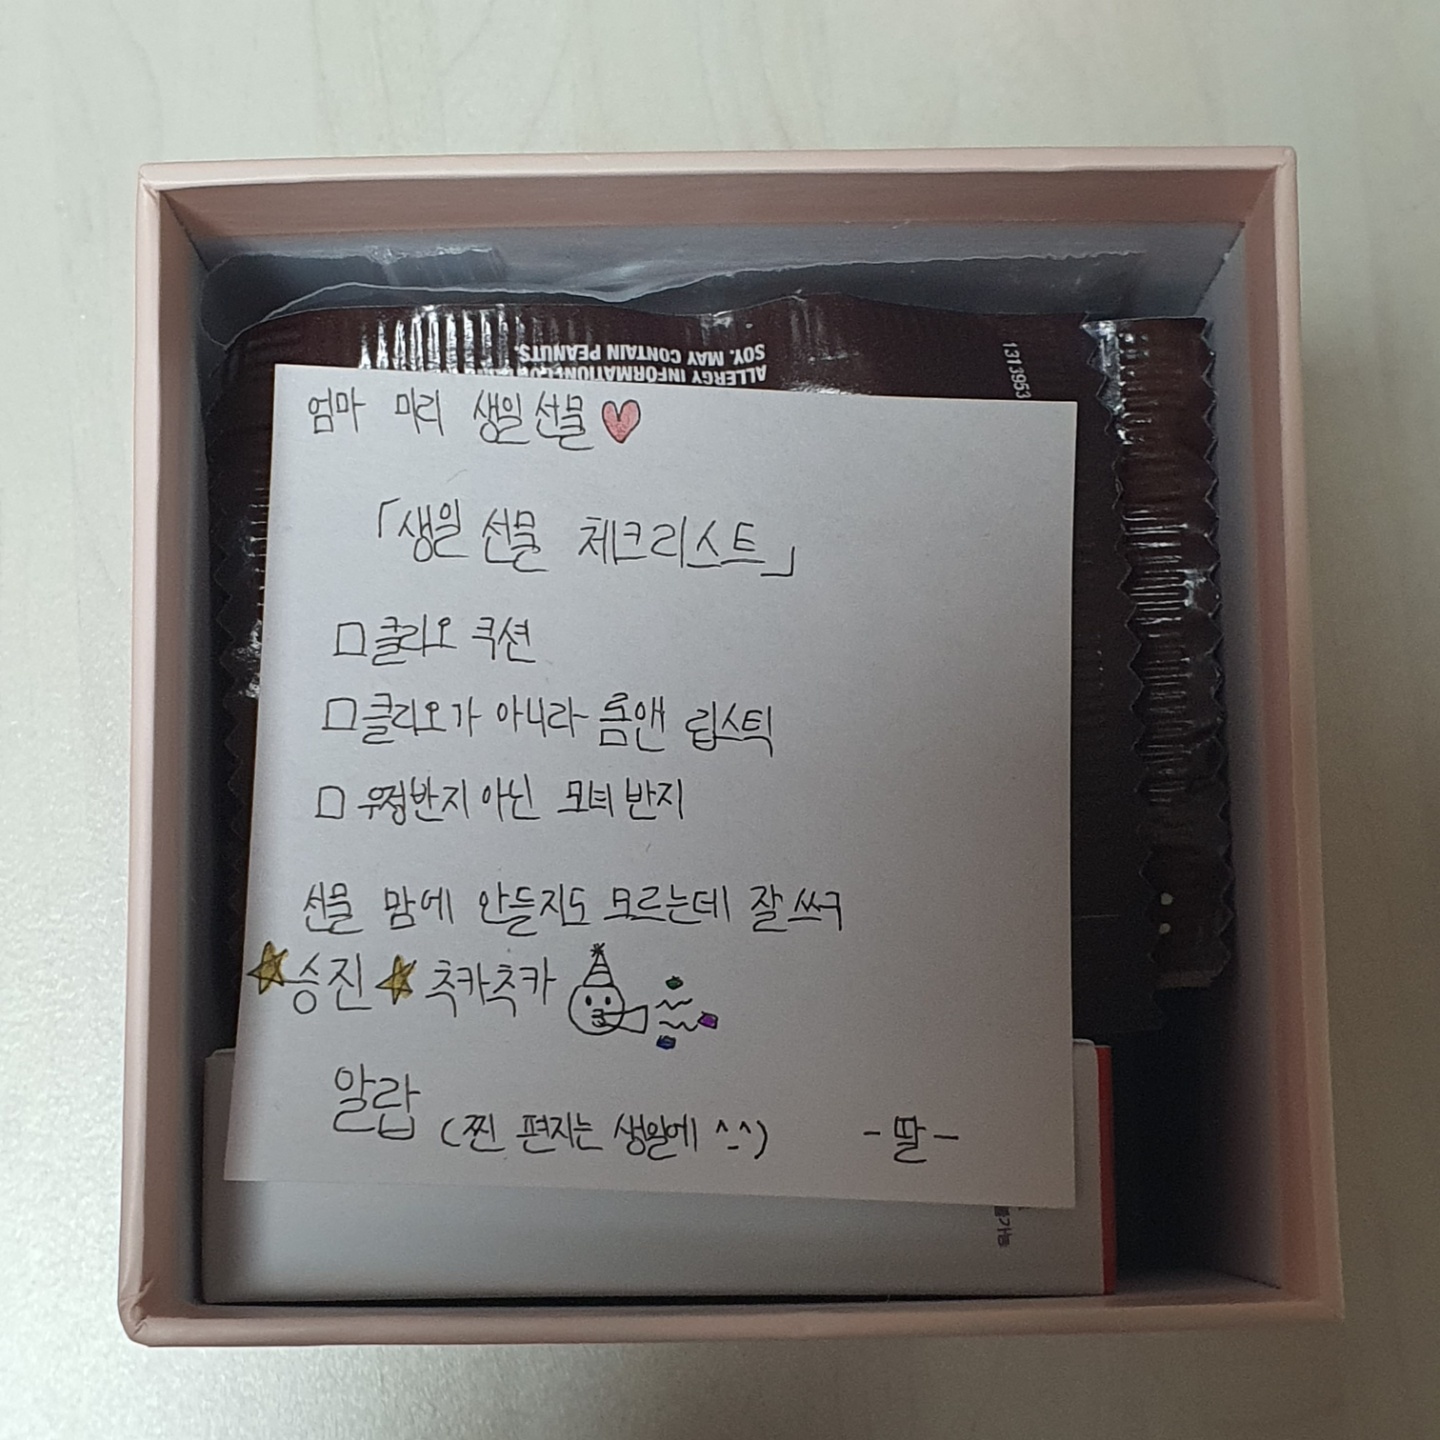 SOY. MAY CONTAIN PEANUTS.
ALLERGY INFORMATION:
131395
엄마 미리 생일선물♥
「생일 선물 체크리스트」
□ 클리오 쿠션
□ 클리오가 아니라 롬앤 립스틱
□ 우정반지 아닌 모녀 반지
선물 맘에 안들지도 모르는데 잘쓰구
☆승진☆ 축카축카
알랍 (찐 편지는 생일에 ^_^)
-딸-